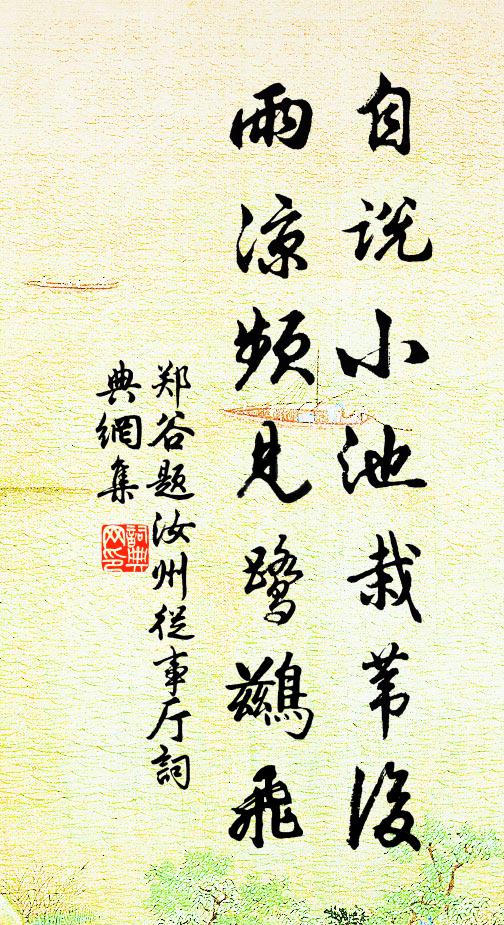 自说小池栽苇後
雨凉频见鹭鹚飛
郑谷题汝州從事厅詞
典網集
詞典网印